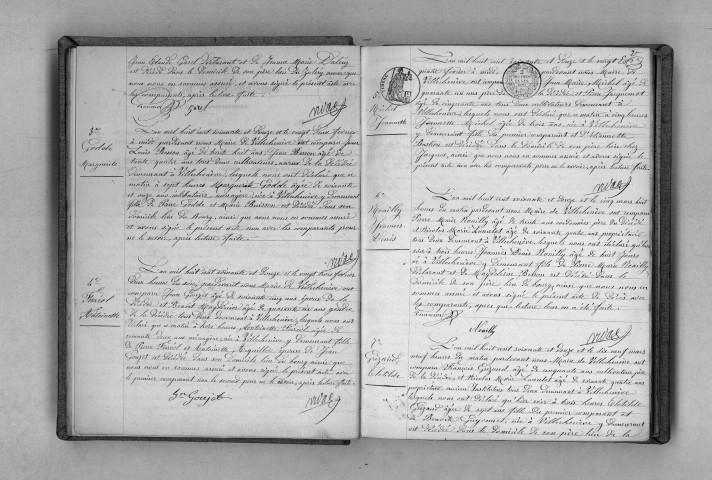 Jean Claude Garel Déclarant et de Jeanne Marie Dalery
est Décédé dans le Domicile de son père lieu de Zalery ainsi que
nous nous en sommes assuré, et avons signé le présent acte avec
les comparants, après lecture faite.
Garel
3me
Godde
Marguerite
L'an mil huit cent soixante et Douze et le vingt Deux février
à midi pardevant nous Maire de Villechenève ont comparu Jean
Louis Besson âgé de trente huit ans, Jean Besson âgé de
trente quatre ans tous deux cultivateurs, de la Décédée
Demeurant à Villechenève, lesquels nous ont Déclaré que ce
matin à sept heures Marguerite Godde âgée de soixante
et onze ans célibataire, ménagère née à Villechenève y Demeurant
fille de Pierre Godde et Marie Buisson est Décédée Dans son
Domicile lieu du Bourg, ainsi que nous nous en sommes assuré
et avons signé le présent acte non avec les comparants pour
ne le savoir, après lecture faite.
4me
Fériol
Antoinette
L'an mil huit cent soixante et Douze et le vingt trois février
Deux heures du soir pardevant nous Maire de Villechenève ont
comparu Jean Goujet âgé de soixante cinq ans époux de la
Décédée et Benoit âgé de quarante six ans gendre
de la Décédée tous Deux Demeurant à Villechenève, lesquels nous ont
Déclaré que ce matin à trois heures Antoinette Fériol âgée de
soixante deux ans ménagère, née à Villechenève y Demeurant fille
de Pierre Fériol et Antoinette épouse de Jean
Goujet est Décédée Dans son Domicile lieu du bourg ainsi que
nous nous en sommes assuré et avons signé le présent acte avec
le premier comparant non le second pour ne le savoir, après lecture faite.
Jn Goujet
25
5me
Michel
Jeannette
L'an mil huit cent soixante et Douze et le vingt
quatre février à midi pardevant nous Maire de
Villechenève ont comparu Jean Marie Michel âgé de
quarante six ans père de la Décédée et Pierre Jacquemot
âgé de cinquante ans tous Deux cultivateurs Demeurant à
Villechenève, lesquels nous ont Déclaré que ce matin à cinq heures
Jeannette Michel âgée de trois ans, née à Villechenève
y Demeurant fille du premier comparant et d'Etiennette
est Décédée Dans le Domicile de son père lieu chez
ainsi que nous nous en sommes assuré et avons signé le
présent acte non avec les comparants pour ne le savoir, après lecture faite.
6e
Nouilly
Joannès
Denis
L'an mil huit cent soixante et Douze et le cinq mars huit
heures du matin pardevant nous Maire de Villechenève ont comparu
Pierre Marie Nouilly âgé de trente ans père du Décédé
et Nicolas âgé de soixante quatre ans propriétaire
tous Deux Demeurant à Villechenève, lesquels nous ont Déclaré qu'hier
soir à trois heures Joannès Denis Nouilly âgé de huit jours
né à Villechenève y Demeurant fils de Pierre Marie Nouilly
Déclarant et de Magdeleine est Décédé Dans le
Domicile de son père lieu du bourg, ainsi que nous nous en
sommes assuré et avons signé le présent acte avec
les comparants, après que lecture leur en a été faite.
Nouilly
7e
Guignard
Clotilde
L'an mil huit cent soixante et Douze et le dix neuf mars
neuf heures du matin pardevant nous Maire de Villechenève ont
comparu François Guignard âgé de cinquante ans cultivateur père
de la Décédée, et Nicolas âgé de soixante quatre ans
propriétaire tous Deux Demeurant à Villechenève
lesquels nous ont Déclaré qu'hier soir à trois heures Clotilde
Guignard âgée de sept ans fille du premier comparant et
de Benoite Guyonnet, née à Villechenève y Demeurant
est Décédée Dans le Domicile de son père lieu de la